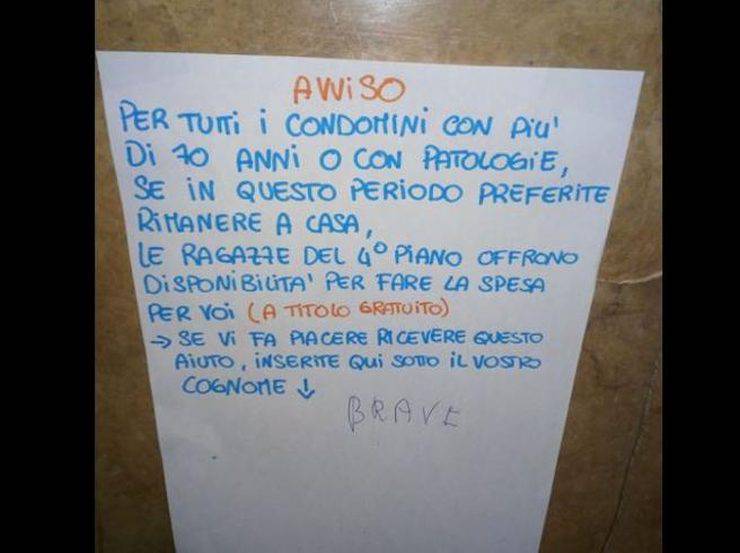 AVVISO
PER TUTTI I CONDOMINI CON PIU'
DI 70 ANNI O CON PATOLOGIE,
SE IN QUESTO PERIODO PREFERITE
RIMANERE A CASA,
LE RAGAZZE DEL 4° PIANO OFFRONO
DISPONIBILITA' PER FARE LA SPESA
PER VOI (A TITOLO GRATUITO)
→ SE VI FA PIACERE RICEVERE QUESTO
AIUTO, INSERITE QUI SOTTO IL VOSTRO
COGNOME ↓
BRAVE